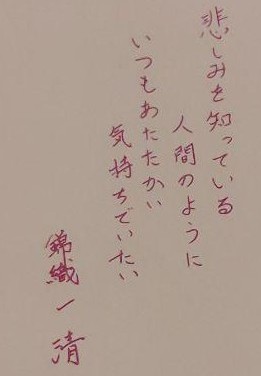 悲しみを知っている
人間のように
いつもあたたかい
気持ちでいたい
錦織一清